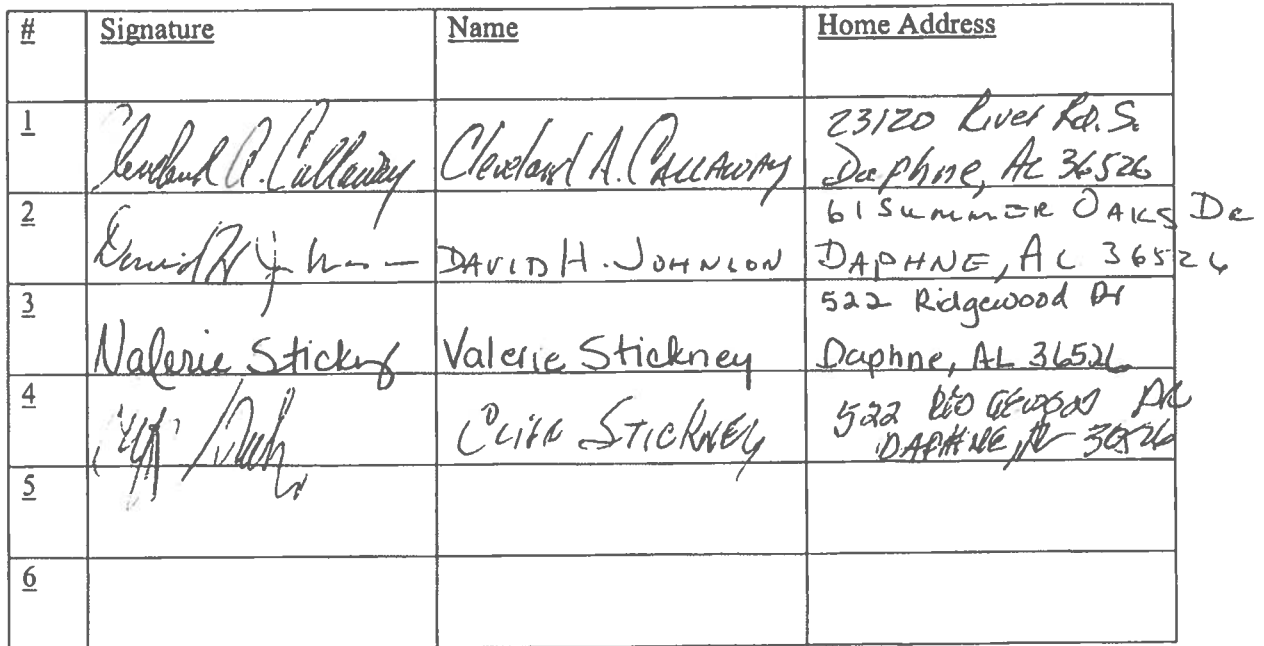 # Signature Name Home Address
1 Cleveland A. Callaway Cleveland A. CALLAWAY 23120 River Rd. S.
Daphne, AL 36526
2 David H. Johnson DAVID H. JOHNSON 61 SUMMER OAKS DR
DAPHNE, AL 36526
3 Valerie Stickney Valerie Stickney 522 Ridgewood Dr
Daphne, AL 36526
4 STICKNEY 522 RIDGEWOOD DR
DAPHNE, AL 36526
5
6